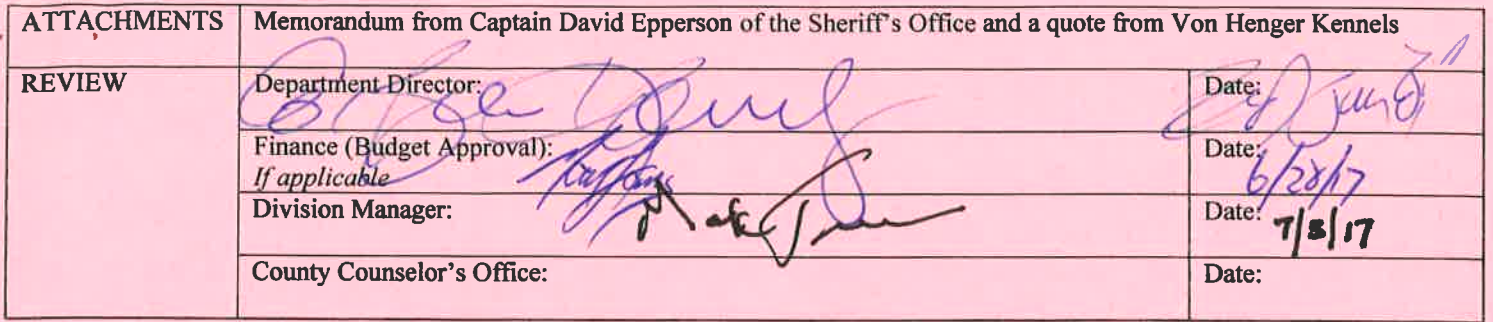 ATTACHMENTS
Memorandum from Captain David Epperson of the Sheriff's Office and a quote from Von Henger Kennels
REVIEW
Department Director:
Date:
Finance (Budget Approval):
If applicable
Date: 6/28/17
Division Manager:
Date: 7/3/17
County Counselor's Office:
Date: